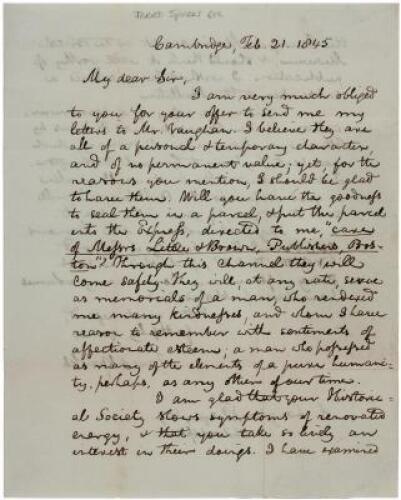 JARED SPARKS
Cambridge, Feb. 21. 1845
My dear Sir,
I am very much obliged
to you for your offer to send me my
letters to Mr. Vaughan. I believe they are
all of a personal & temporary character,
and of no permanent value; yet, for the
reasons you mention, I should be glad
to have them. Will you have the goodness
to seal them in a parcel, & put the parcel
into the Express, directed to me, "care
of Messrs Little & Brown, Publishers, Bos-
ton"? Through this channel they will
come safely. They will, at any rate, serve
as memorials of a man, who rendered
me many kindnesses, and whom I have
reason to remember with sentiments of
affectionate esteem; a man who possessed
as many of the elements of a pure humani-
ty, perhaps, as any other of our time.
I am glad that your Historic-
al Society shows symptoms of renovated
energy, & that you take so lively an
interest in their doings. I have examined